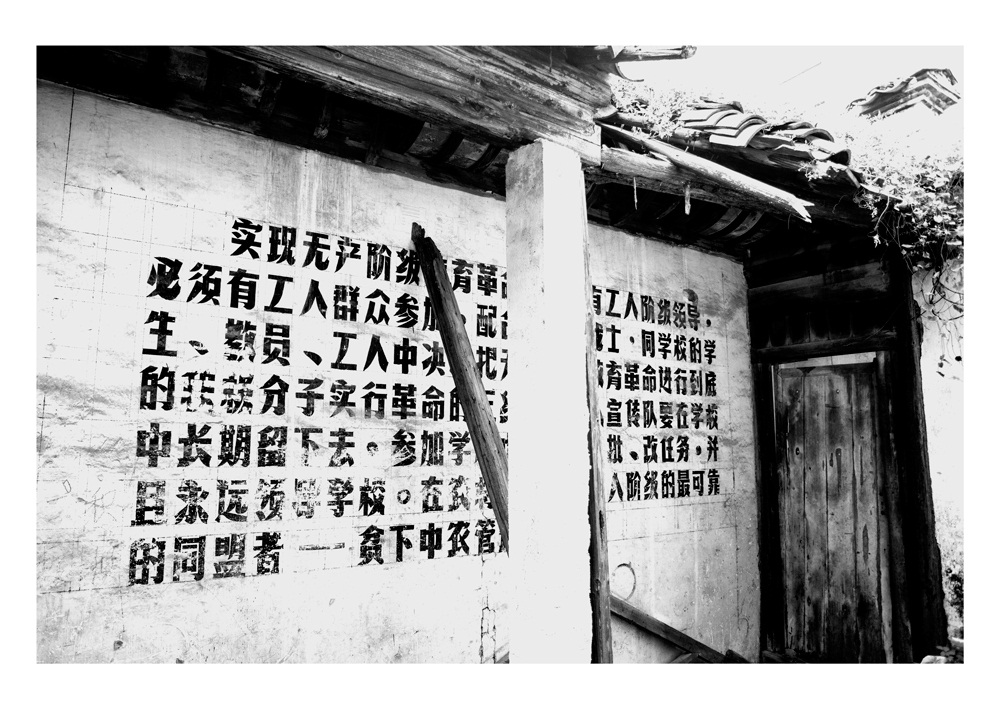 实现无产阶级 育革 有工人阶级领导,
必须有工人群众参加,配 士,同学校的学
生、教员、工人中决 把 育革命进行到底
的 分子实行革命的 宣传队要在学校
中长期留下去。参加学 批、改任务,并
且永远 导学校。在农 人阶级的最可靠
的同盟者——贫下中农管